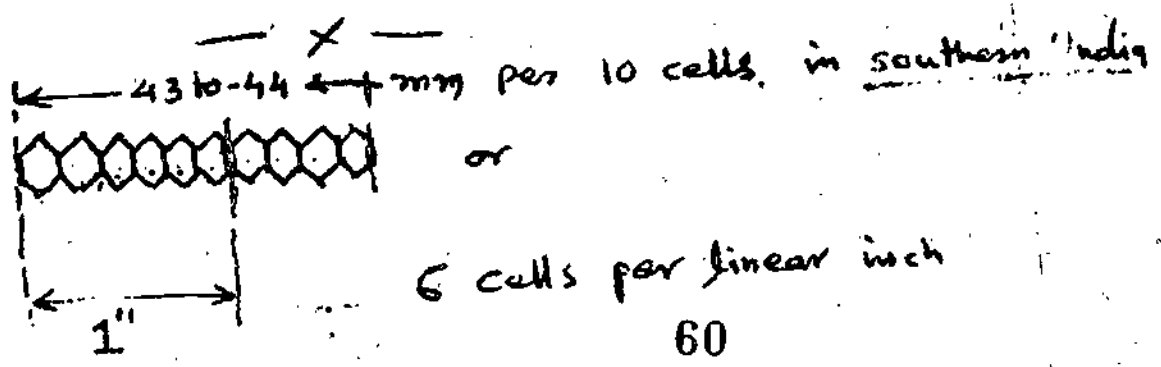 — X —
43 to-44 mm per 10 cells. in southern India
or
6 cells per linear inch
1"
60